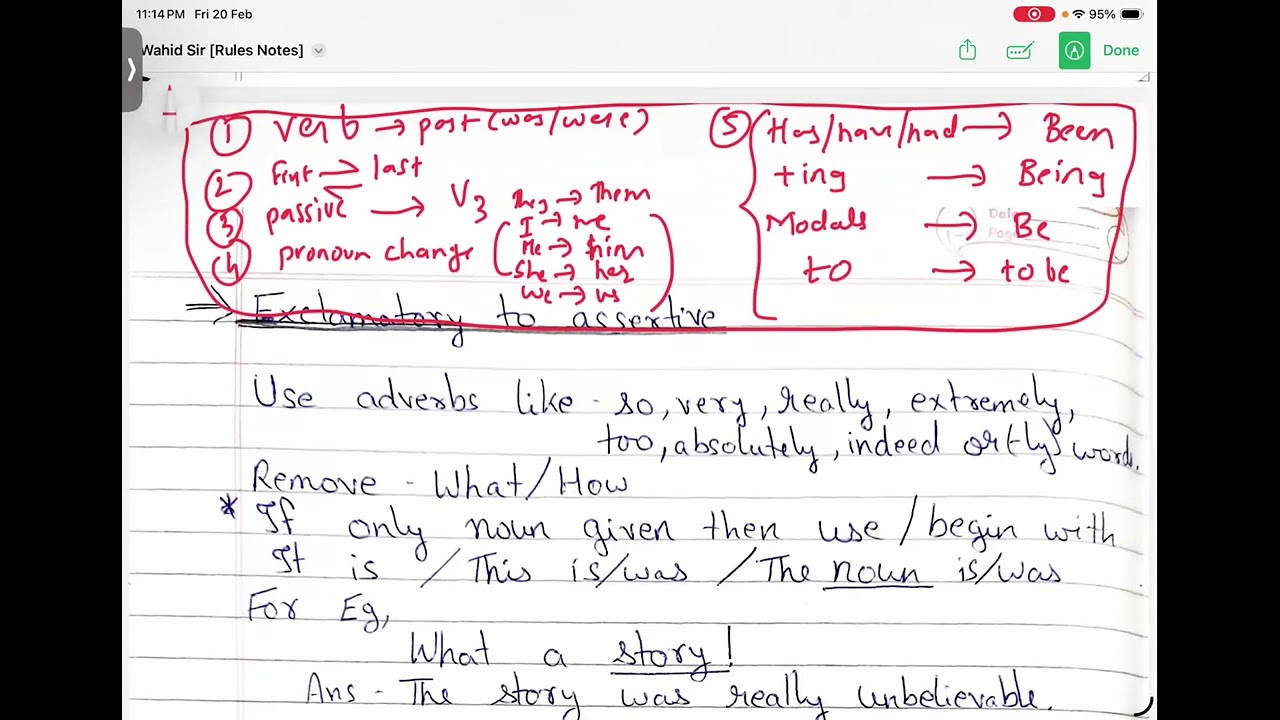 11:14 PM Fri 20 Feb 95%
Wahid Sir [Rules Notes] Done
① verb → past (was/were)
② First ⇌ last
③ passive → V3
④ pronoun change
They → Them
I → me
He → him
She → her
We → us
⑤ Has/have/had → Been
+ing → Being
Modals → Be
to → to be
⇒ Exclamatory to assertive
Use adverbs like - so, very, really, extremely,
too, absolutely, indeed or (-ly) word.
Remove - What/How
* If only noun given then use / begin with
It is / This is/was / The noun is/was
For Eg,
What a story!
Ans - The story was really unbelievable.